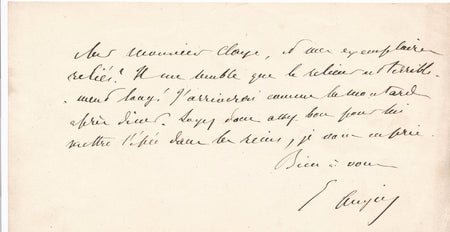 Cher monsieur Claye, et mes exemplaires
reliés? Il me semble que le relieur est terrible-
-ment long! J'arriverai comme la moutarde
après diner. Soyez donc assez bon pour lui
mettre l'épée dans les reins, je vous en prie.
Bien à vous
E Augier